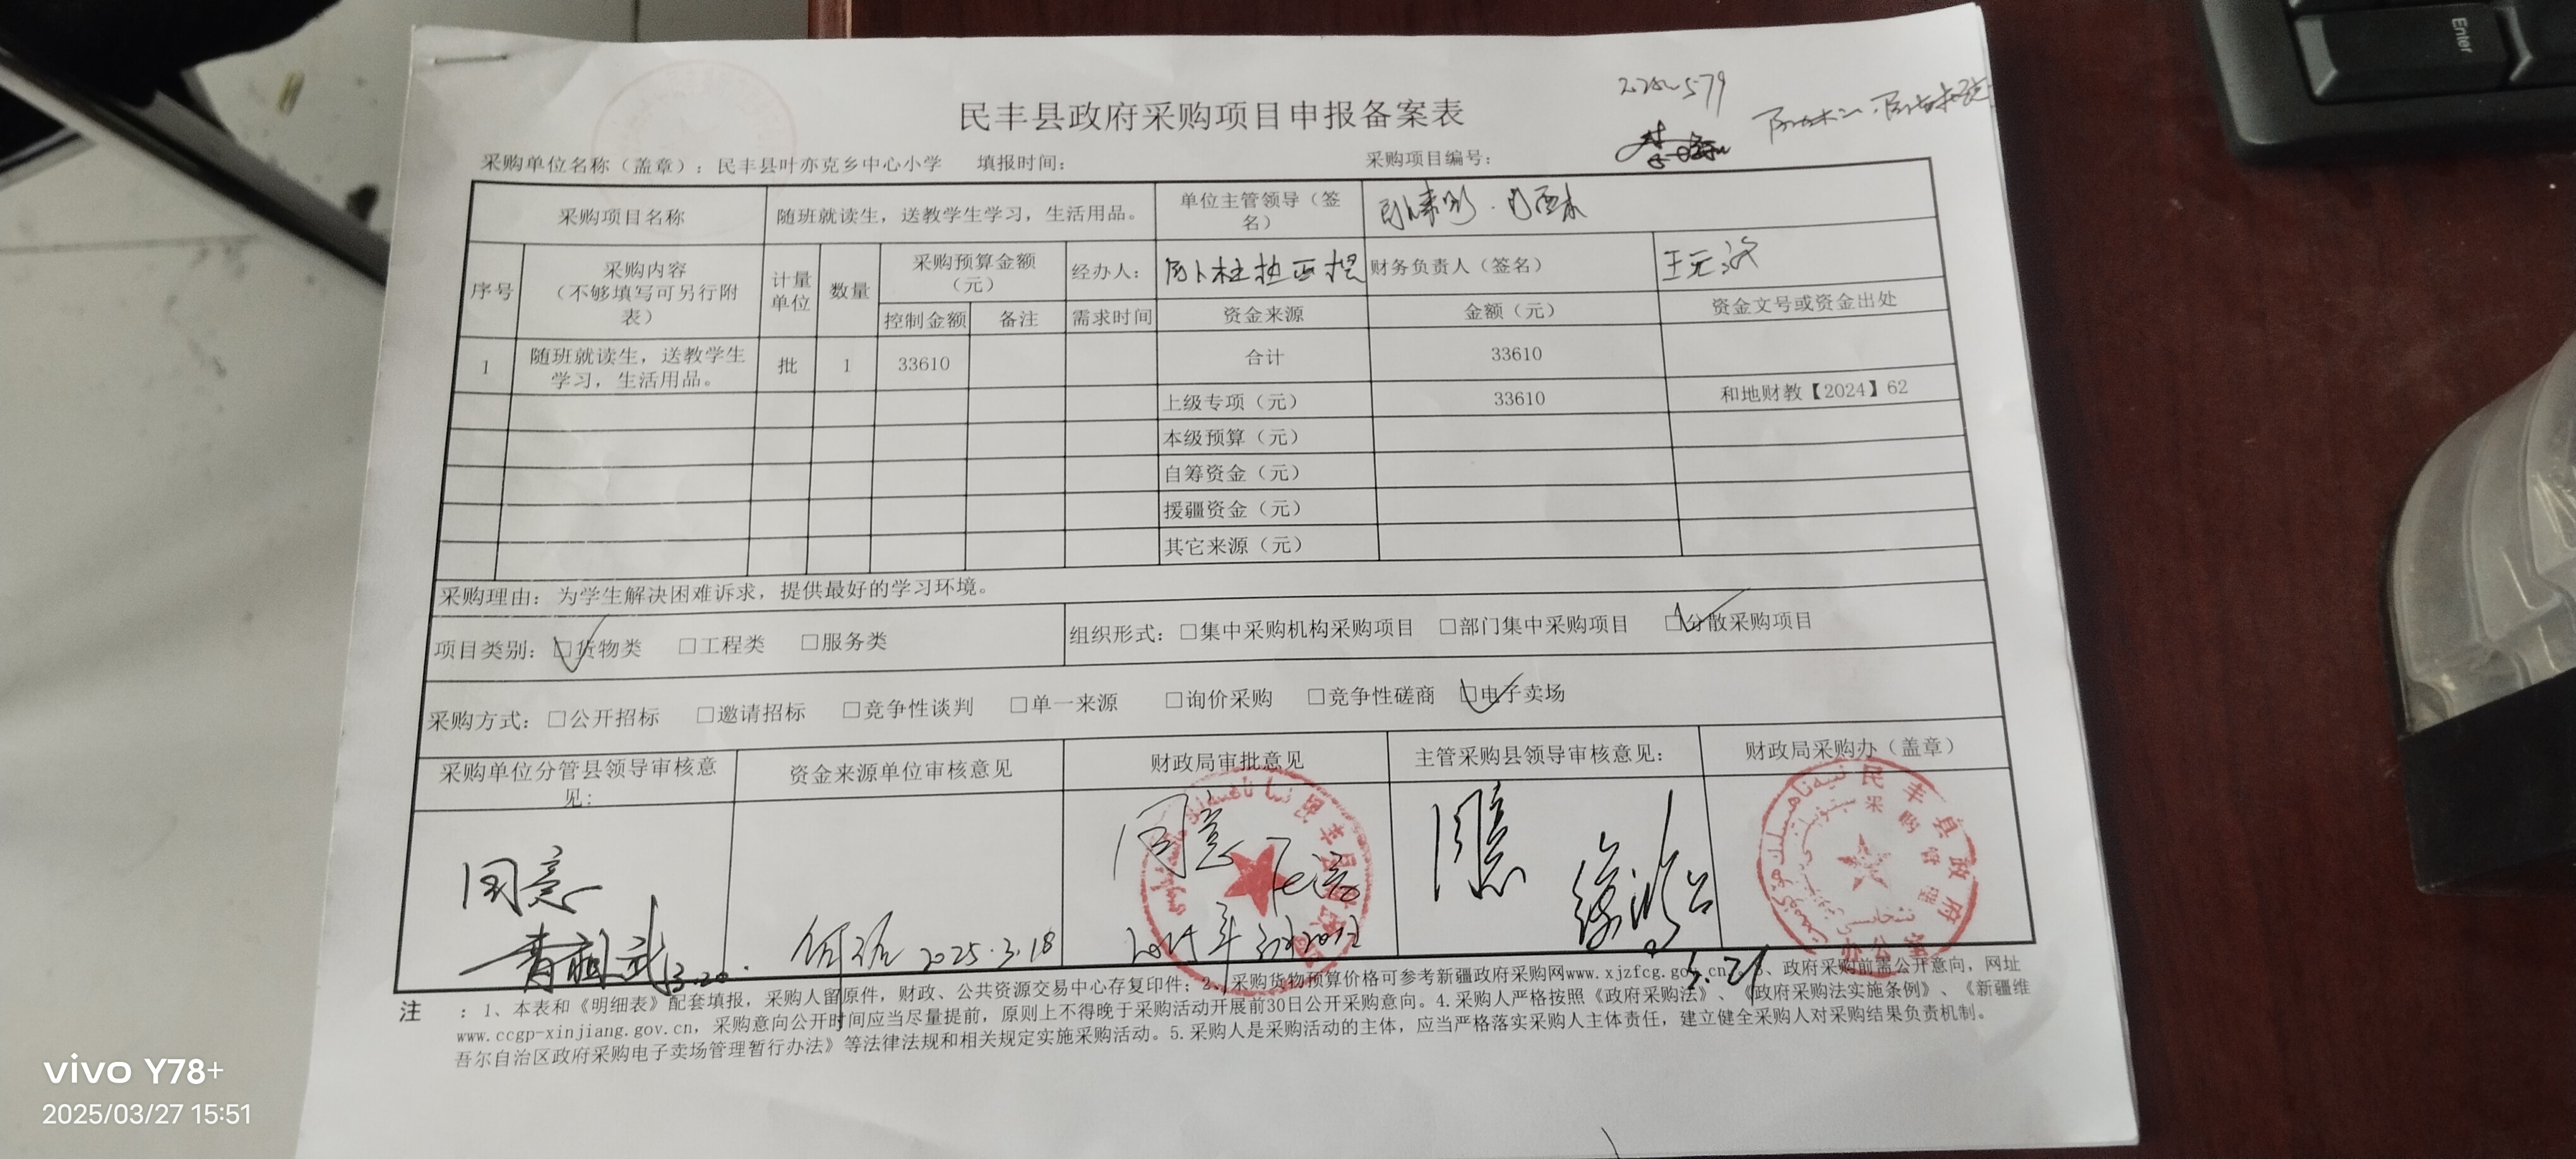 民丰县政府采购项目申报备案表
采购单位名称（盖章）：民丰县叶亦克乡中心小学 填报时间： 采购项目编号：
采购项目名称 随班就读生，送教学生学习，生活用品。 单位主管领导（签名）
序号 采购内容（不够填写可另行附表） 计量单位 数量 采购预算金额（元） 经办人： 财务负责人（签名）
控制金额 备注 需求时间 资金来源 金额（元） 资金文号或资金出处
1 随班就读生，送教学生学习，生活用品。 批 1 33610 合计 33610
上级专项（元） 33610 和地财教【2024】62
本级预算（元）
自筹资金（元）
援疆资金（元）
其它来源（元）
采购理由：为学生解决困难诉求，提供最好的学习环境。
项目类别：☑货物类 □工程类 □服务类 组织形式：□集中采购机构采购项目 □部门集中采购项目 ☑分散采购项目
采购方式：□公开招标 □邀请招标 □竞争性谈判 □单一来源 □询价采购 □竞争性磋商 ☑电子卖场
采购单位分管县领导审核意见： 资金来源单位审核意见 财政局审批意见 主管采购县领导审核意见： 财政局采购办（盖章）
同意 同意 同意
3.20. 2025.3.18 3.21
民丰县政府采购管理办公室
注：1、本表和《明细表》配套填报，采购人留原件，财政、公共资源交易中心存复印件；2、采购货物预算价格可参考新疆政府采购网www.xjzfcg.gov.cn；3、政府采购前需公开意向，网址
www.ccgp-xinjiang.gov.cn，采购意向公开时间应当尽量提前，原则上不得晚于采购活动开展前30日公开采购意向。4.采购人严格按照《政府采购法》、《政府采购法实施条例》、《新疆维
吾尔自治区政府采购电子卖场管理暂行办法》等法律法规和相关规定实施采购活动。5.采购人是采购活动的主体，应当严格落实采购人主体责任，建立健全采购人对采购结果负责机制。
Enter
vivo Y78+
2025/03/27 15:51